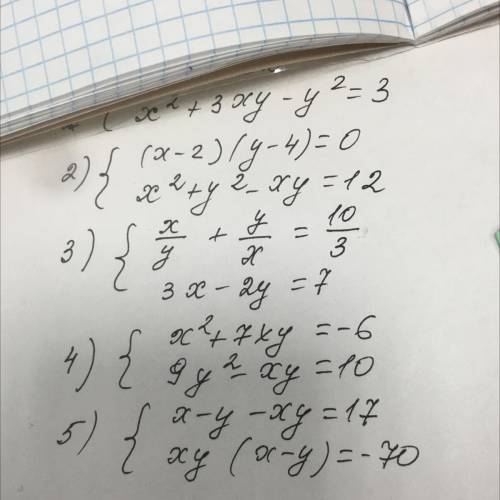 x² + 3xy - y² = 3
2) { (x-2)(y-4) = 0
x² + y² - xy = 12
3) { x/y + y/x = 10/3
3x - 2y = 7
4) { x² + 7xy = -6
9y² - xy = 10
5) { x - y - xy = 17
xy (x-y) = -70